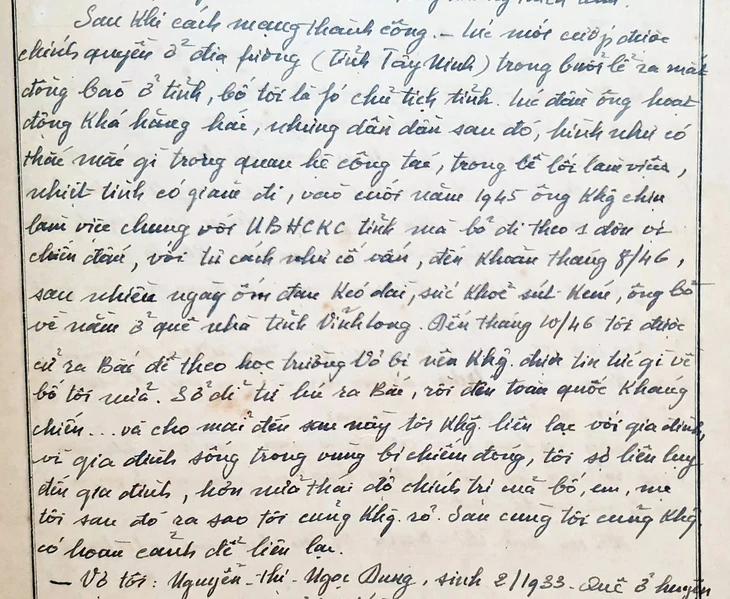 Sau khi cách mạng thành công. – lúc mới cướp được
chính quyền ở địa fương (tỉnh Tây Ninh) trong buổi lễ ra mắt
đồng bào ở tỉnh, bố tôi là fó chủ tịch tỉnh. Lúc đầu ông hoạt
động khá hăng hái, nhưng dần dần sau đó, hình như có
thắc mắc gì trong quan hệ công tác, trong lề lối làm việc,
nhiệt tình có giảm đi, vào cuối năm 1945 ông khg chịu
làm việc chung với UBHCKC tỉnh mà bỏ đi theo 1 đơn vị
chiến đấu, với tư cách như cố vấn, đến khoản tháng 8/46,
sau nhiều ngày ốm đau kéo dài, sức khoẻ sút kém, ông bỏ
về nằm ở quê nhà tỉnh Vĩnh Long. Đến tháng 10/46 tôi được
cử ra Bắc để theo học trường Võ bị nên khg. được tin tức gì về
bố tôi nữa. Sở dĩ từ lúc ra Bắc, rồi đến toàn quốc kháng
chiến... và cho mãi đến sau này tôi khg. liên lạc với gia đình,
vì gia đình sống trong vùng bị chiếm đóng, tôi sợ liên lụy
đến gia đình, hơn nữa thái độ chính trị mà bố, em, mẹ
tôi sau đó ra sao tôi cũng khg. rõ. Sau cùng tôi cũng khg.
có hoàn cảnh để liên lạc.
– Vợ tôi: Nguyễn-Thị-Ngọc Dung, sinh 2/1933. Quê ở huyện